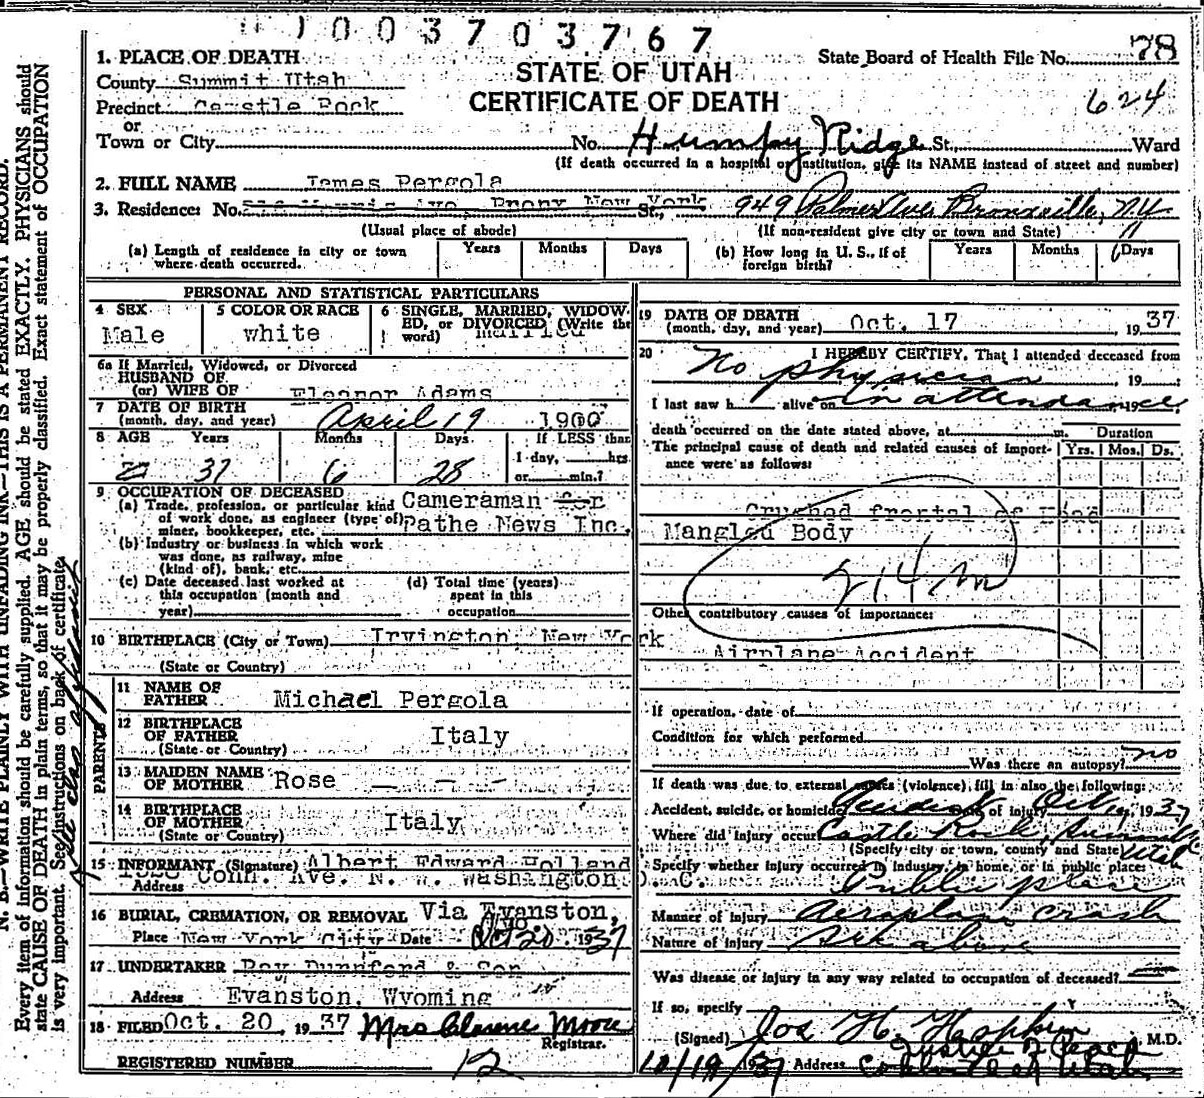 1003703767
1. PLACE OF DEATH
State Board of Health File No. 78
County Summit Utah
STATE OF UTAH
624
Precinct Castle Rock
CERTIFICATE OF DEATH
or
Town or City No. Humpy Ridge St., Ward
(If death occurred in a hospital or institution, give its NAME instead of street and number)
2. FULL NAME James Pergola
3. Residence: No. Ave. Bronx New York St., 949 Palmer Ave. Bronxville, N.Y.
(Usual place of abode) (If non-resident give city or town and State)
(a) Length of residence in city or town where death occurred. Years Months Days
(b) How long in U. S., if of foreign birth? Years Months Days
PERSONAL AND STATISTICAL PARTICULARS
4 SEX Male
5 COLOR OR RACE white
6 SINGLE, MARRIED, WIDOWED, or DIVORCED (Write the word) married
6a If Married, Widowed, or Divorced
HUSBAND OF
(or) WIFE OF Eleanor Adams
7 DATE OF BIRTH
(month, day, and year) April 19 1900
8 AGE Years Months Days If LESS than
37 6 28 1 day, hrs
or min.?
9 OCCUPATION OF DECEASED
(a) Trade, profession, or particular kind of work done, as engineer (type of) miner, bookkeeper, etc. Cameraman for Pathe News Inc.
(b) Industry or business in which work was done, as railway, mine (kind of), bank, etc.
(c) Date deceased last worked at this occupation (month and year)
(d) Total time (years) spent in this occupation
10 BIRTHPLACE (City or Town) Irvington, New York
(State or Country)
PARENTS
11 NAME OF FATHER Michael Pergola
12 BIRTHPLACE OF FATHER Italy
(State or Country)
13 MAIDEN NAME OF MOTHER Rose — - —
14 BIRTHPLACE OF MOTHER Italy
(State or Country)
15 INFORMANT (Signature) Albert Edward Holland
Address Conn. Ave. N. W. Washington D. C.
16 BURIAL, CREMATION, OR REMOVAL Via Evanston, Wyo.
Place New York City Date Oct 20 1937
17 UNDERTAKER Roy Durnford & Son
Address Evanston, Wyoming
18 FILED Oct. 20, 1937 Mrs Clarence Moore
Registrar.
REGISTERED NUMBER 12
19 DATE OF DEATH
(month, day, and year) Oct. 17, 1937
20 I HEREBY CERTIFY, That I attended deceased from
No physician, 19
I last saw h alive on in attendance, 19
death occurred on the date stated above, at m.
Duration
The principal cause of death and related causes of importance were as follows: Yrs. Mos. Ds.
Crushed frontal of Head
Mangled Body
214 m
Other contributory causes of importance:
Airplane Accident
If operation, date of
Condition for which performed
Was there an autopsy? no
If death was due to external causes (violence), fill in also the following:
Accident, suicide, or homicide Accident Date of injury Oct 1937
Where did injury occur Castle Rock, Summit Utah
(Specify city or town, county and State)
Specify whether injury occurred in industry, in home, or in public place:
Public place
Manner of injury Aeroplane crash
Nature of injury see above
Was disease or injury in any way related to occupation of deceased?
If so, specify
(Signed) Jos H. Hopkin M.D.
Justice of Peace
10/19 1937 Address Utah
N. B.—WRITE PLAINLY WITH UNFADING INK—THIS IS A PERMANENT RECORD.
Every item of information should be carefully supplied. AGE should be stated EXACTLY. PHYSICIANS should
state CAUSE OF DEATH in plain terms, so that it may be properly classified. Exact statement of OCCUPATION
is very important. See instructions on back of certificate.